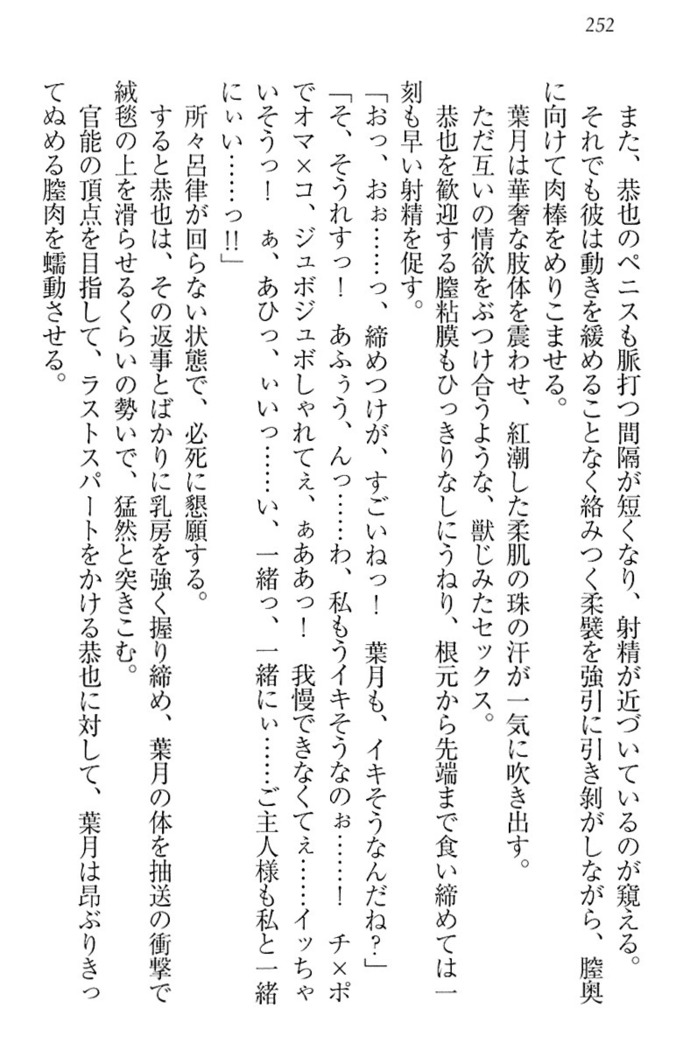 252
また、恭也のペニスも脈打つ間隔が短くなり、射精が近づいているのが窺える。
それでも彼は動きを緩めることなく絡みつく柔襞を強引に引き剝がしながら、膣奥
に向けて肉棒をめりこませる。
葉月は華奢な肢体を震わせ、紅潮した柔肌の珠の汗が一気に吹き出す。
ただ互いの情欲をぶつけ合うような、獣じみたセックス。
恭也を歓迎する膣粘膜もひっきりなしにうねり、根元から先端まで食い締めては一
刻も早い射精を促す。
「おっ、おぉ……っ、締めつけが、すごいねっ！　葉月も、イキそうなんだね？」
「そ、そうれすっ！　あふぅう、んっ……わ、私もうイキそうなのぉ……！　チ×ポ
でオマ×コ、ジュボジュボしゃれてぇ、ぁああっ！　我慢できなくてぇ……イッちゃ
いそうっ！　ぁ、あひっ、ぃいっ……い、一緒っ、一緒にぃ……ご主人様も私と一緒
にぃい……っ!!」
所々呂律が回らない状態で、必死に懇願する。
すると恭也は、その返事とばかりに乳房を強く握り締め、葉月の体を抽送の衝撃で
絨毯の上を滑らせるくらいの勢いで、猛然と突きこむ。
官能の頂点を目指して、ラストスパートをかける恭也に対して、葉月は昂ぶりきっ
てぬめる膣肉を蠕動させる。